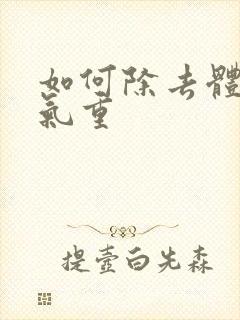 如何除去體
氣重
提壺白先森